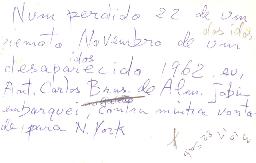 Num perdido 22 de um
remoto Novembro de um
dos idos
desaparecido 1962, eu,
Ant. Carlos Bras. de Alm. Jobim
embarquei, contra minha vonta-
de para N. York